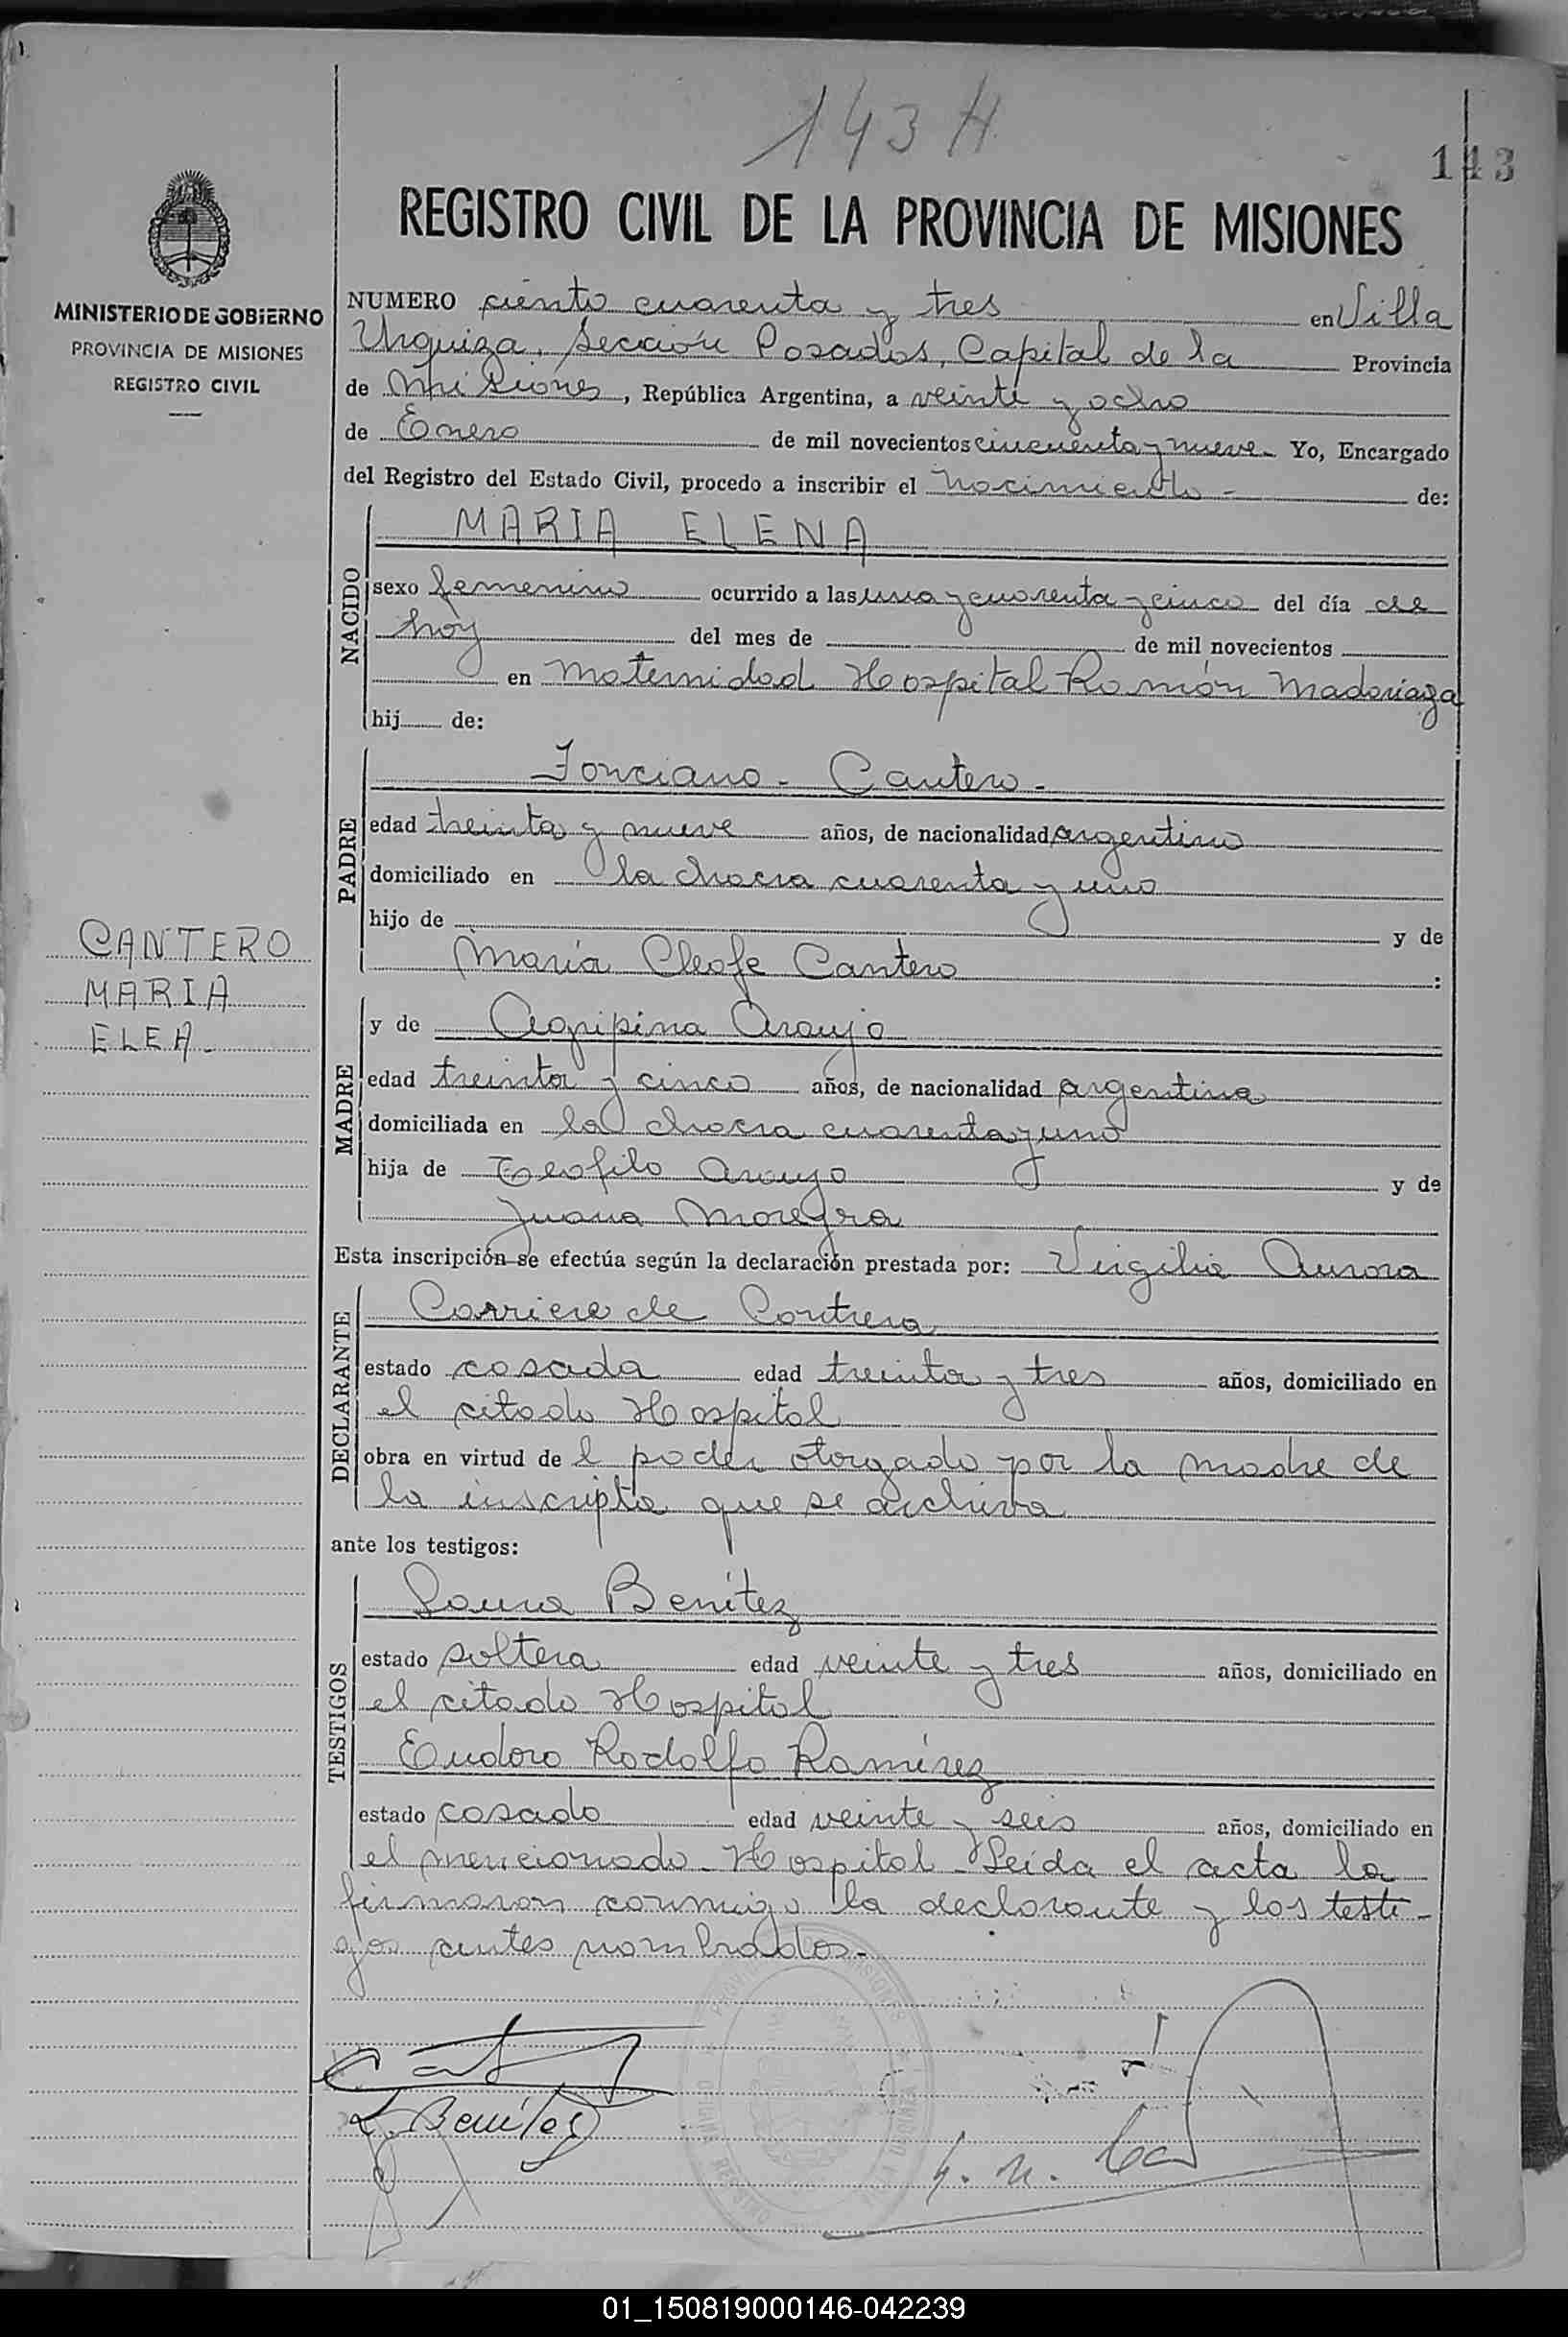 143 H
143
REGISTRO CIVIL DE LA PROVINCIA DE MISIONES
MINISTERIO DE GOBIERNO
PROVINCIA DE MISIONES
REGISTRO CIVIL
NUMERO ciento cuarenta y tres en Villa
Urquiza, Sección Posadas, Capital de la Provincia
de Misiones, República Argentina, a veinte y ocho
de Enero de mil novecientos cincuenta y nueve Yo, Encargado
del Registro del Estado Civil, procedo a inscribir el nacimiento - de:
NACIDO
MARIA ELENA
sexo femenino ocurrido a las una y cuarenta y cinco del día de
hoy del mes de de mil novecientos
en Maternidad Hospital Ramón Madariaga
hij de:
PADRE
Cantero -
edad treinta y nueve años, de nacionalidad argentino
domiciliado en la chacra cuarenta y uno
hijo de y de
Maria Cleofe Cantero :
CANTERO
MARIA
ELEA.
MADRE
y de Agripina Araujo
edad treinta y cinco años, de nacionalidad argentina
domiciliada en la chacra cuarenta y uno
hija de Teofilo Araujo y de
Juana Moreyra
Esta inscripción se efectúa según la declaración prestada por: Virgilia Aurora
DECLARANTE
Carriere de Contrera
estado casada edad treinta y tres años, domiciliado en
el citado Hospital
obra en virtud de l poder otorgado por la madre de
la inscripta que se archiva
ante los testigos:
TESTIGOS
Laura Benítez
estado soltera edad veinte y tres años, domiciliado en
el citado Hospital
Eudoro Rodolfo Ramírez
estado casado edad veinte y seis años, domiciliado en
el mencionado Hospital - Leída el acta la
firmaron conmigo la declarante y los testi-
gos antes nombrados.-
L. Benítez
01_150819000146-042239